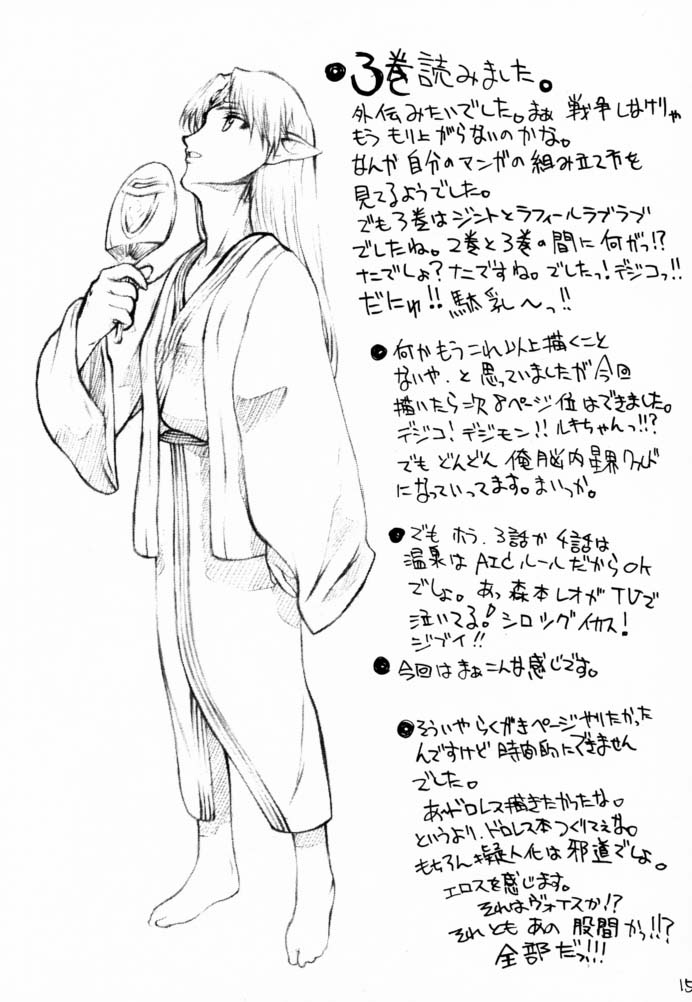 ●3巻読みました。
外伝みたいでした。まぁ 戦争しなけりゃ
もう もり上がらないのかな。
なんか 自分のマンガの組み立て方を
見てるようでした。
でも3巻はジントとラフィールラブラブ
でしたね。2巻と3巻の間に何がっ!?
なでしょ?なですね。でしたっ!デジコっ!!
だにゅ!! 駄乳〜っ!!
●何かもうこれ以上描くこと
ないや.と思っていましたが今回
描いたら 8ページ位はできました。
デジコ!デジモン!!ルキちゃんっ!!?
でも どんどん 俺脳内星界
になっていってます。まいっか。
●でも ホラ.3話か4話は
温泉はAICルールだからOK
でしょ。あっ森本レオがTVで
泣いてる!シロツグイカス!
ジブイ!!
●今回はまぁこんな感じです。
●そういやらくがきページやりたかった
んですけど 時間的にできません
でした。
あ.ドロレス描きたかったな。
というより.ドロレス本つくりてぇな。
もちろん擬人化は邪道でしょ。
エロスを感じます。
それはヴォイスか!?
それとも あの 股間かっ!!?
全部だっ!!!
15